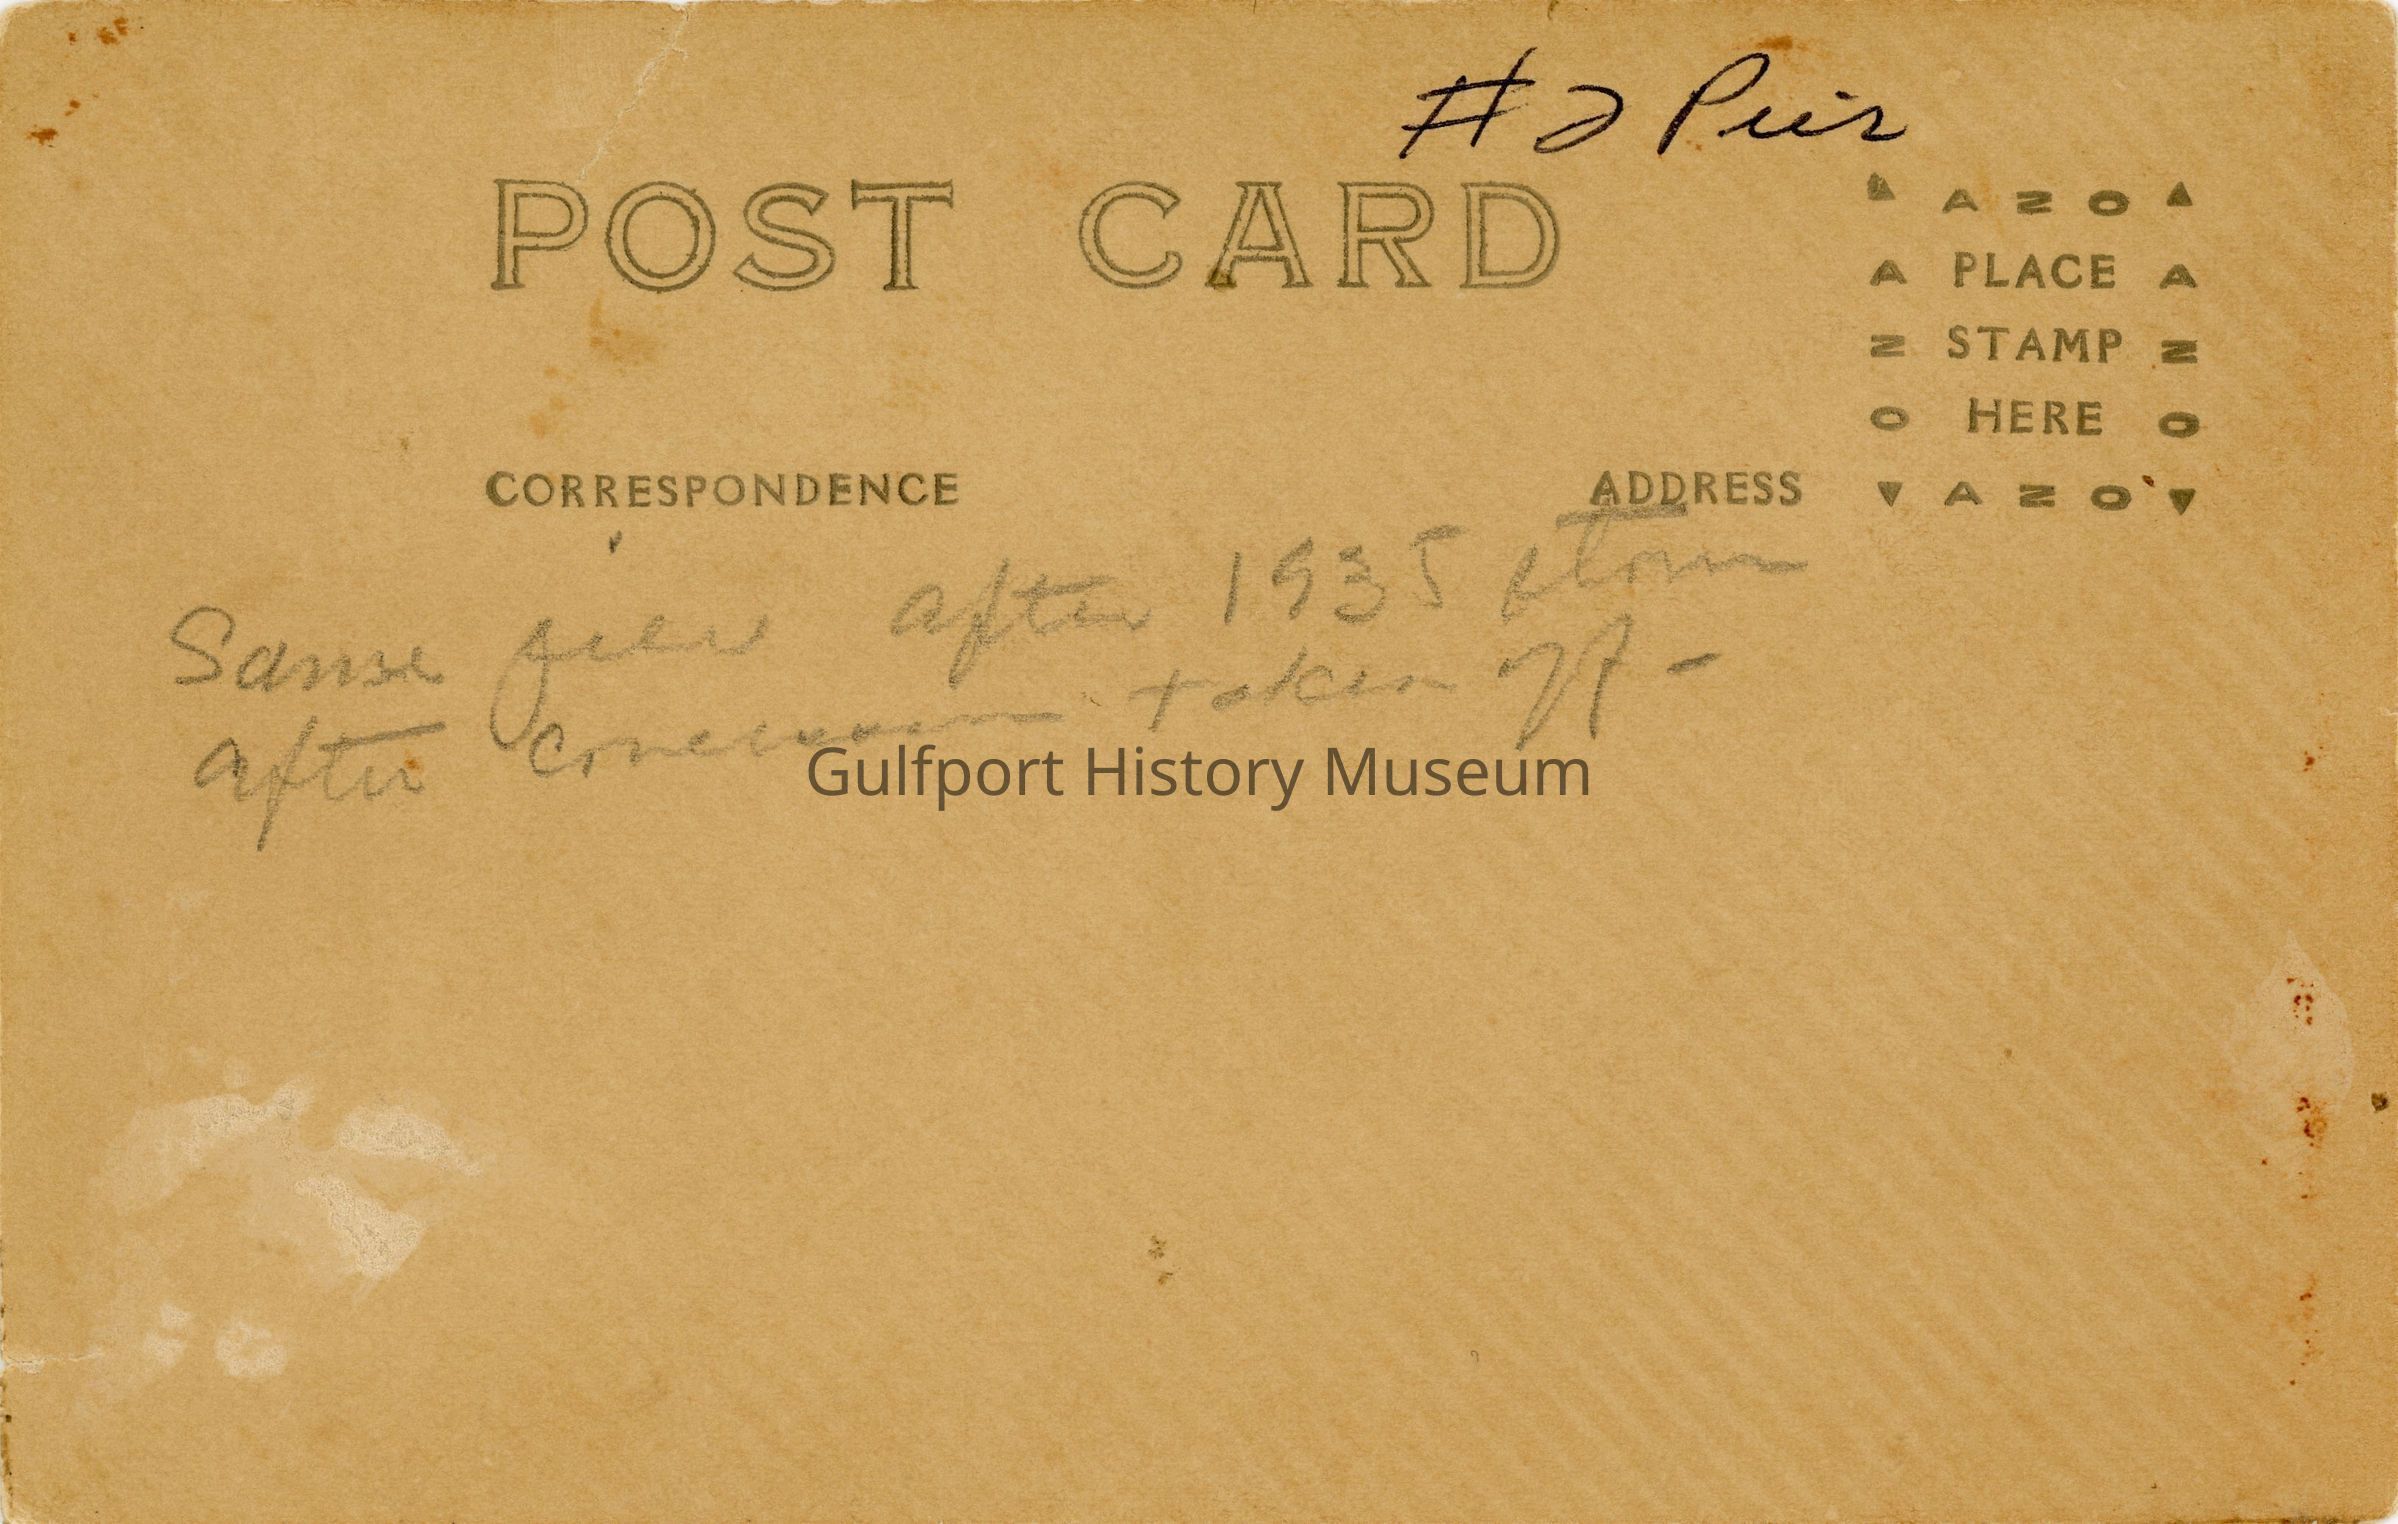 #2 Pier
POST CARD
AZO
A PLACE A
Z STAMP Z
O HERE O
AZO
CORRESPONDENCE
ADDRESS
Same pier after 1935 storm
after taken
Gulfport History Museum